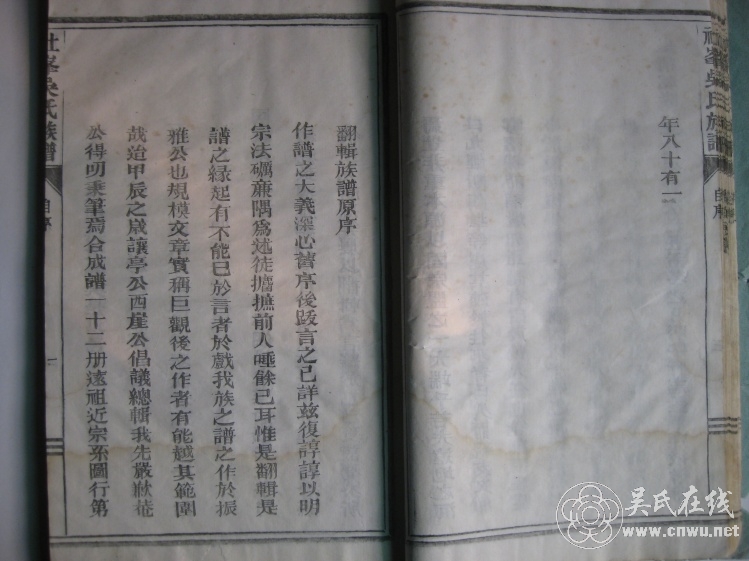 社峯吳氏族譜
自序
年八十有一
翻輯族譜原序
作譜之大義深心舊序後跋言之已詳兹復諄諄以明
宗法礪廉隅爲述徒攟摭前人唾餘已耳惟是翻輯是
譜之緣起有不能已於言者於戲我族之譜之作於振
雅公也規模文章實稱巨觀後之作者有能越其範圍
哉迨甲辰之歲讓亭公西崖公倡議總輯我先嚴歉菴
公得明秉筆焉合成譜一十二册遠祖近宗系圖行第
社峯吳氏族譜
自序
吴氏在线
www.cnwu.net